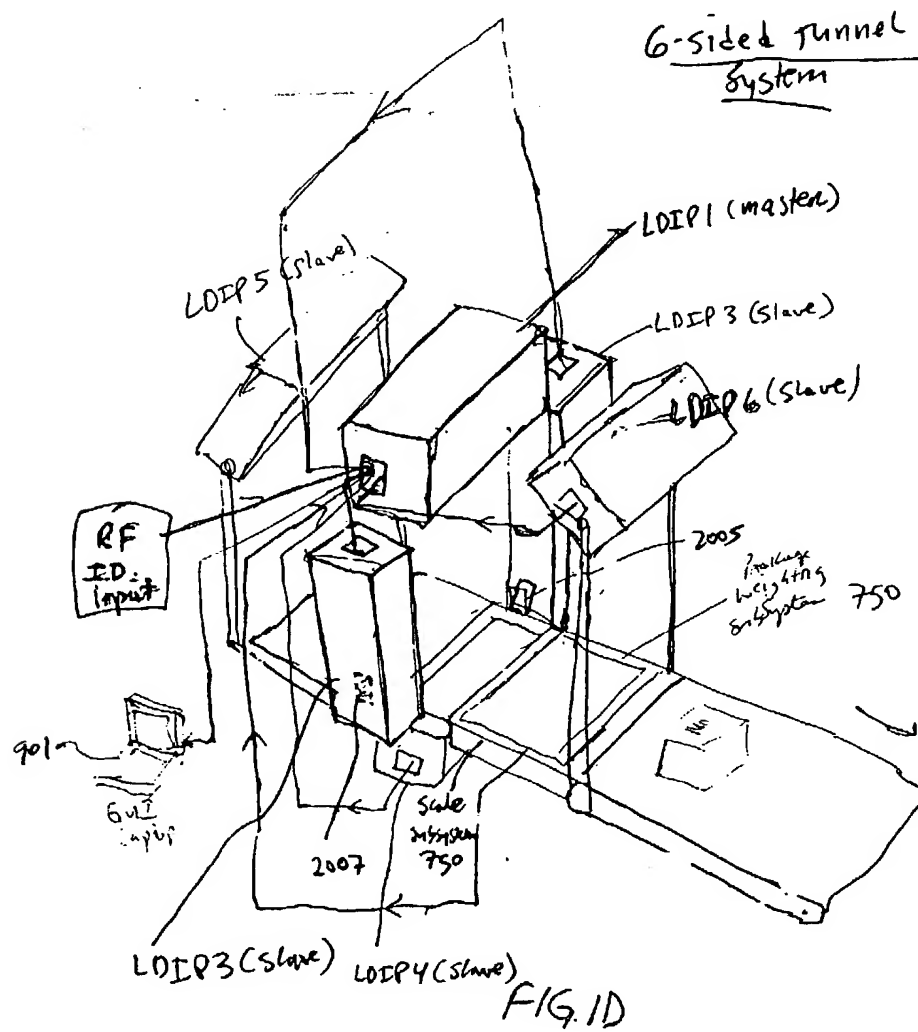 6-sided Tunnel
System
LDIP1 (master)
LDIP5 (slave)
LDIP3 (slave)
LDIP6 (slave)
RF
I.D.
Input
2005
Package
weighing
subsystem 750
901
GUI
input
scale
subsystem
750
2007
LDIP3 (slave)
LDIP4 (slave)
FIG. 1D